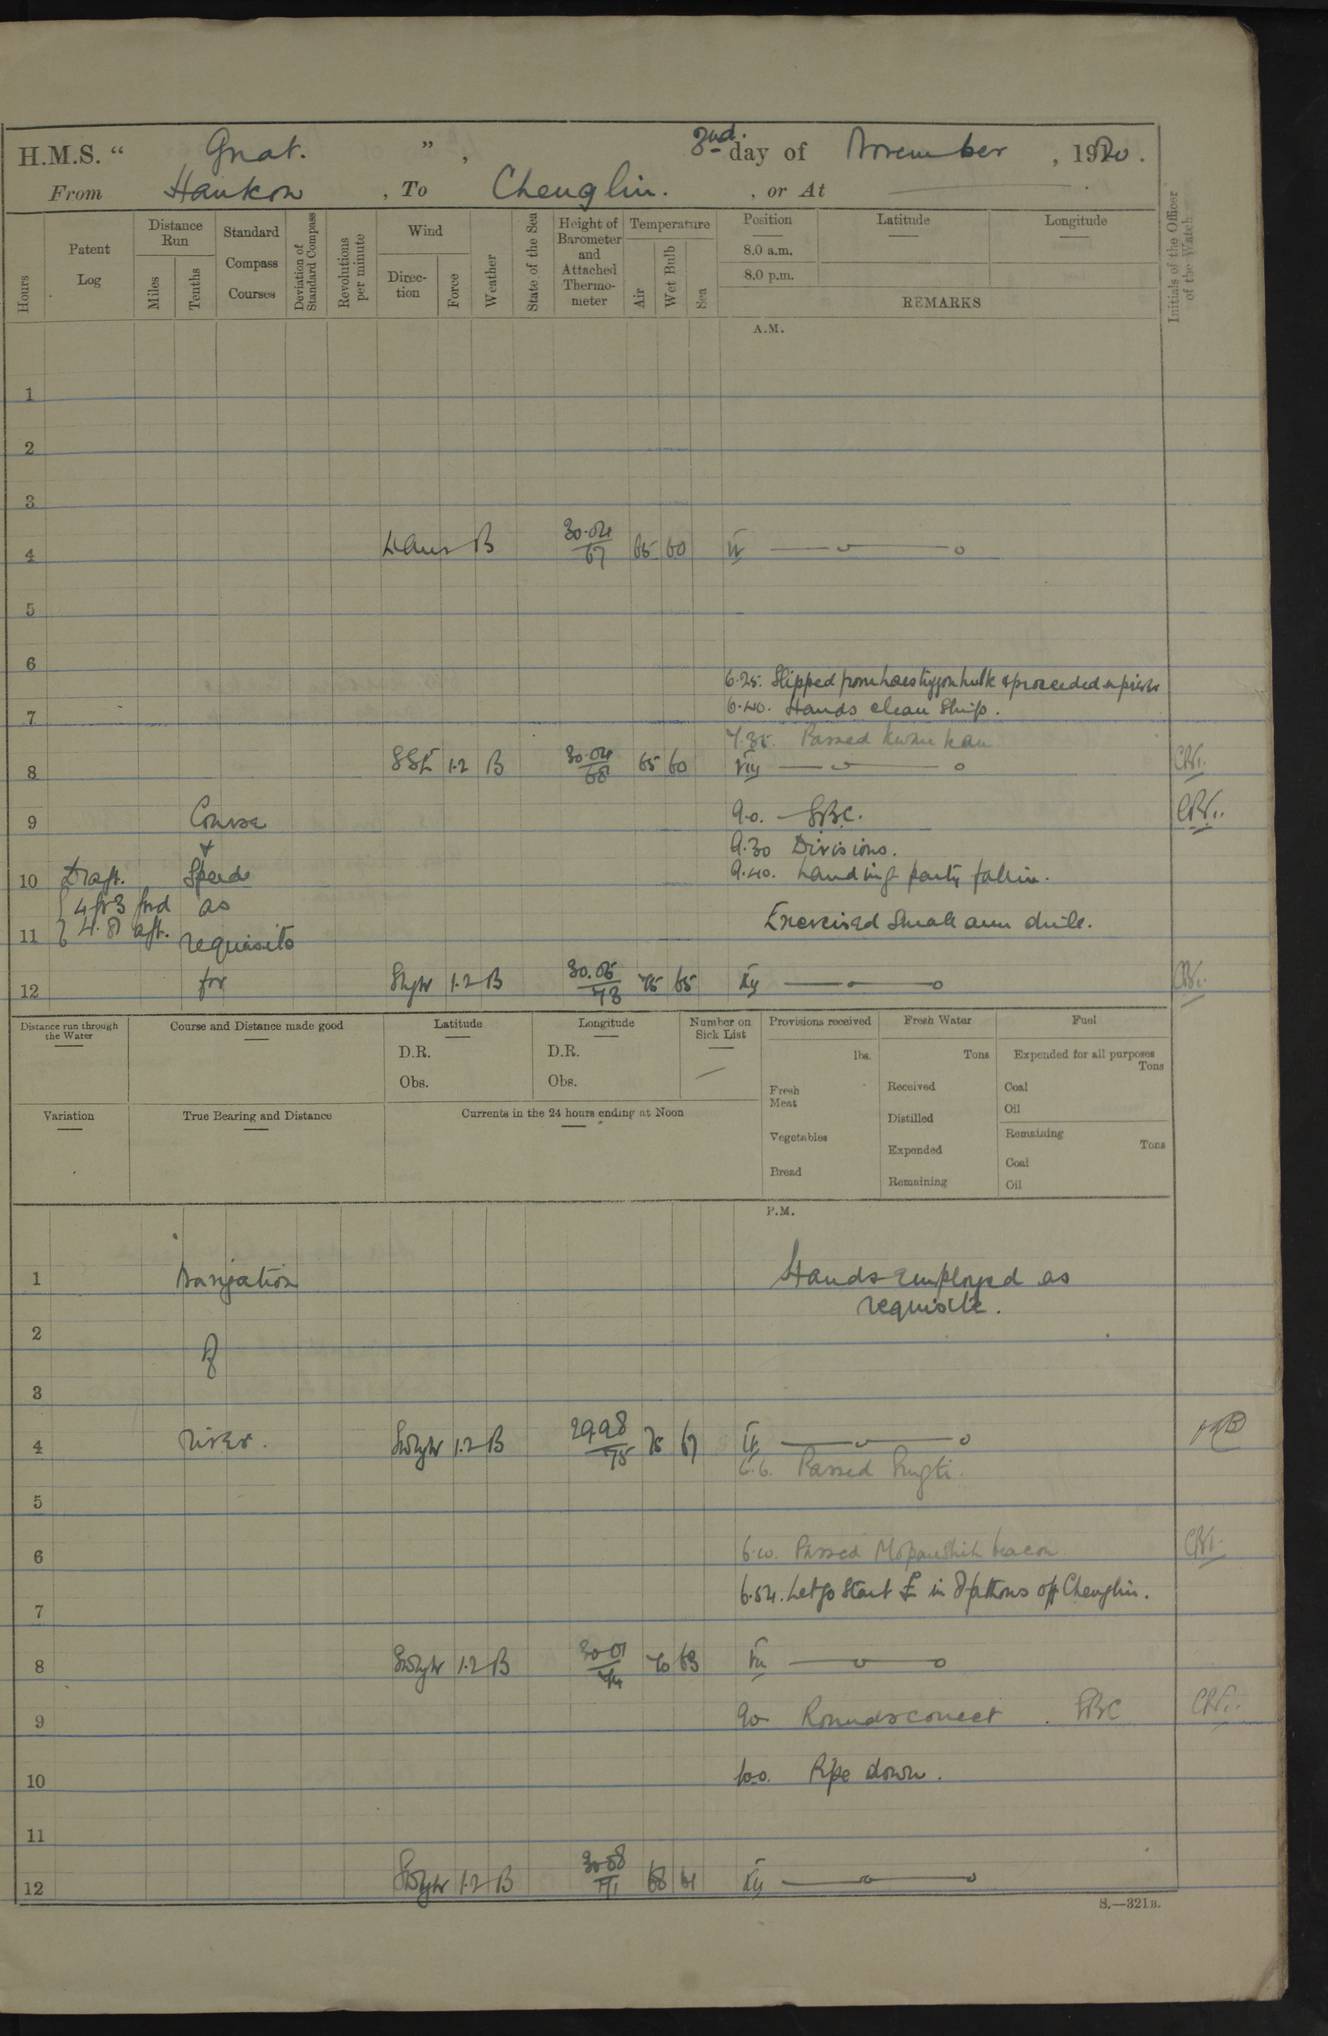 H.M.S. " Gnat. ", 2nd. day of November, 1920.
From Hankow, To Chenglin. , or At
Hours
Patent Log
Distance Run
Miles
Tenths
Standard Compass Courses
Deviation of Standard Compass
Revolutions per minute
Wind
Direction
Force
Weather
State of the Sea
Height of Barometer and Attached Thermometer
Temperature
Air
Wet Bulb
Sea
Position
Latitude
Longitude
8.0 a.m.
8.0 p.m.
REMARKS
Initials of the Officer of the Watch
A.M.
1
2
3
4 B 30.04 67 65 60 IV
5
6
6.25. Slipped from hulk & proceeded
6.40. Hands clean Ship.
7
7.35. Passed Kwan Kau
8 SSE 1.2 B 30.04 68 65 60 VIII
9 Course 9.0. SBC.
& 9.30 Divisions.
10 Draft. Speeds 9.40. Landing party fall in.
fwd as
11 4.8 aft. requisite Exercised Small arm drill.
12 for 1.2 B 30.05 73 75 65 XII
Distance run through the Water
Course and Distance made good
Latitude
D.R.
Obs.
Longitude
D.R.
Obs.
Number on Sick List
Provisions received
lbs.
Fresh Meat
Vegetables
Bread
Fresh Water
Tons
Received
Distilled
Expended
Remaining
Fuel
Expended for all purposes
Tons
Coal
Oil
Remaining
Tons
Coal
Oil
Variation
True Bearing and Distance
Currents in the 24 hours ending at Noon
P.M.
1 Navigation Hands employed as
requisite.
2
of
3
4 river. 1.2 B 29.98 75 75 67 IV
Passed
5
6 6.10. Passed Mopanshih beacon
6.54. Let go Start £ in fathoms off Chenglin.
7
8 1.2 B 30.01 74 70 63 VIII
9 9.0 Rounds correct. SBC
10 10.0. Pipe down.
11
12 1.2 B 71 68 61 XII
S.—321B.